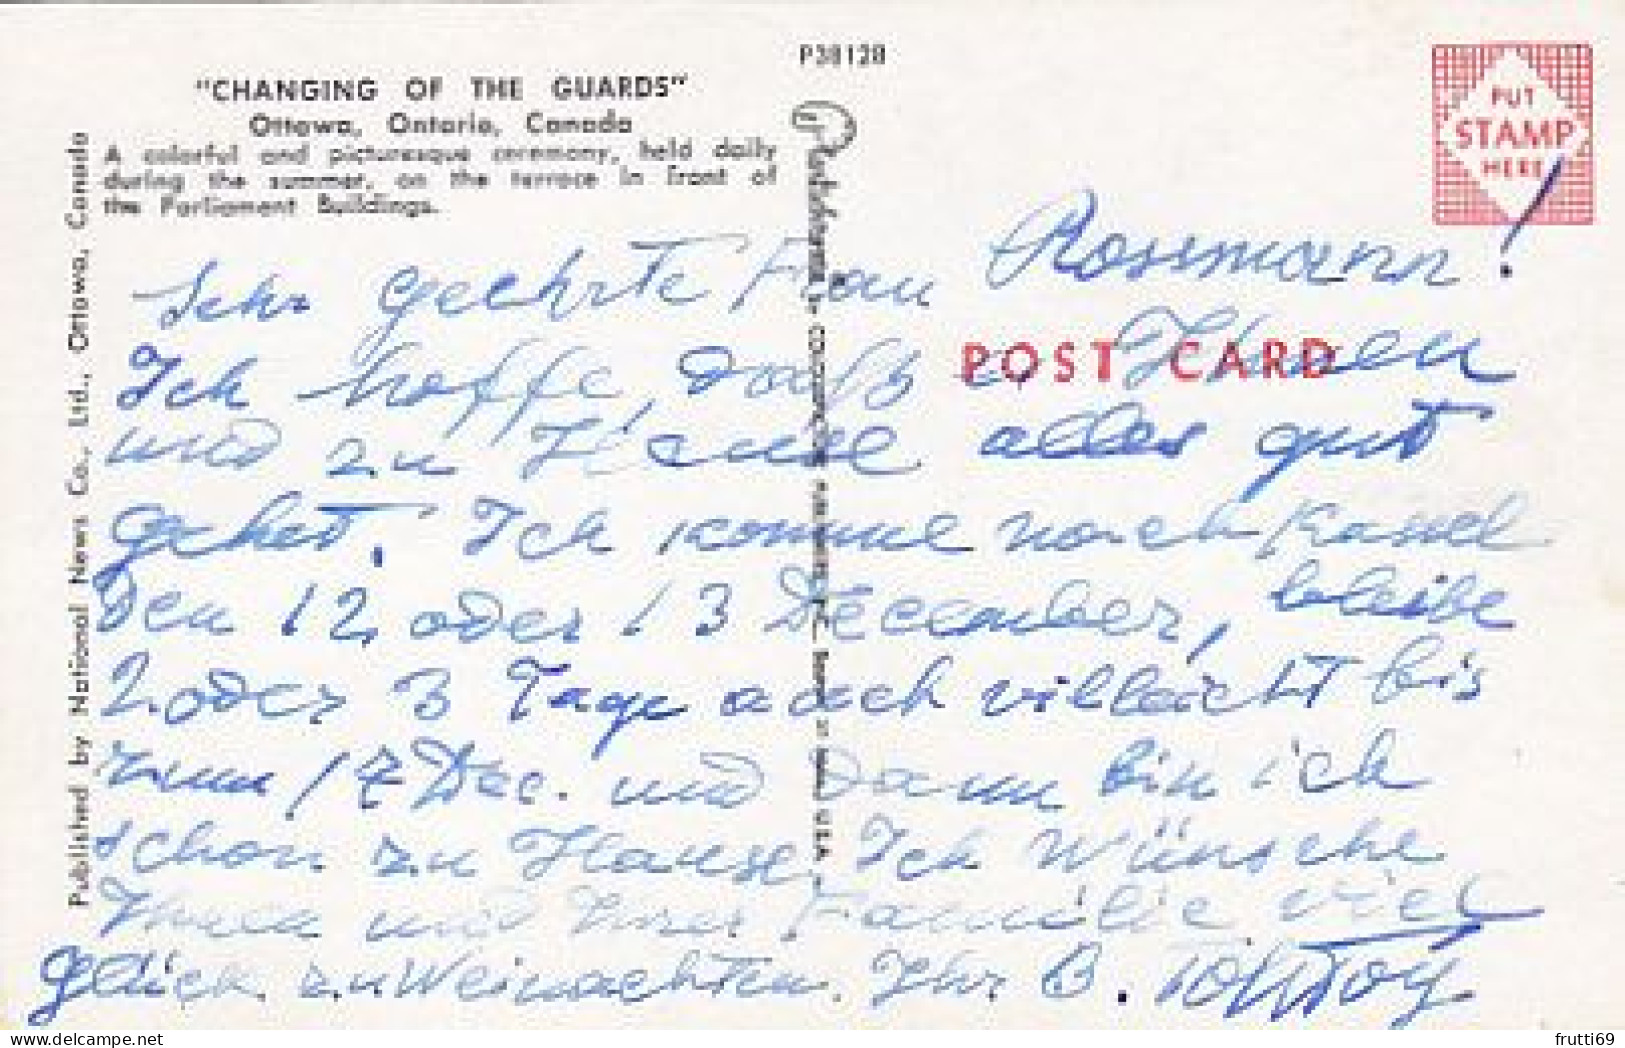 P38128
"CHANGING OF THE GUARDS"
Ottawa, Ontario, Canada
A colorful and picturesque ceremony, held daily
during the summer, on the terrace in front of
the Parliament Buildings.
PUT
STAMP
HERE
POST CARD
Published by National News Co., Ltd., Ottawa, Canada
Plastichrome by COLOURPICTURE PUBLISHERS, INC., Boston U.S.A.
Sehr geehrte Frau Rossmann!
Ich hoffe, daß es Ihnen
und zu Hause alles gut
gehet. Ich komme nach Kassel
den 12, oder 13 December, bleibe
2 oder 3 Tage auch villeicht bis
zum 17 Dec. und dann bin ich
schon zu Hause, Ich Wünsche
Ihnen und Ihrer Familie viel
Glück zu Weinachten. Ihr B.
frutti69